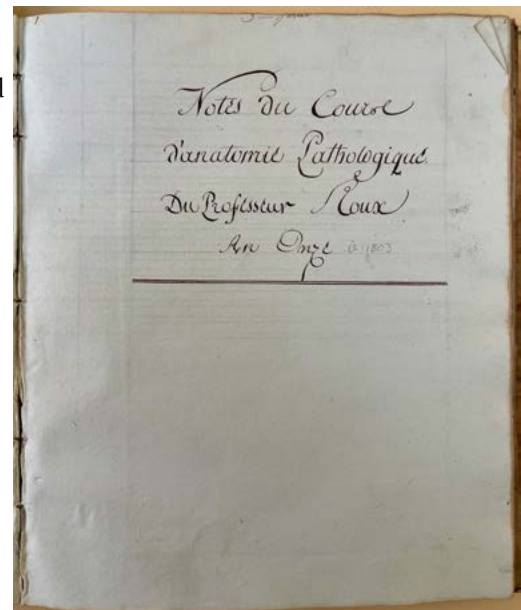 Notes du Course
d'anatomie Pathologique
Du Professeur Roux
An Onze